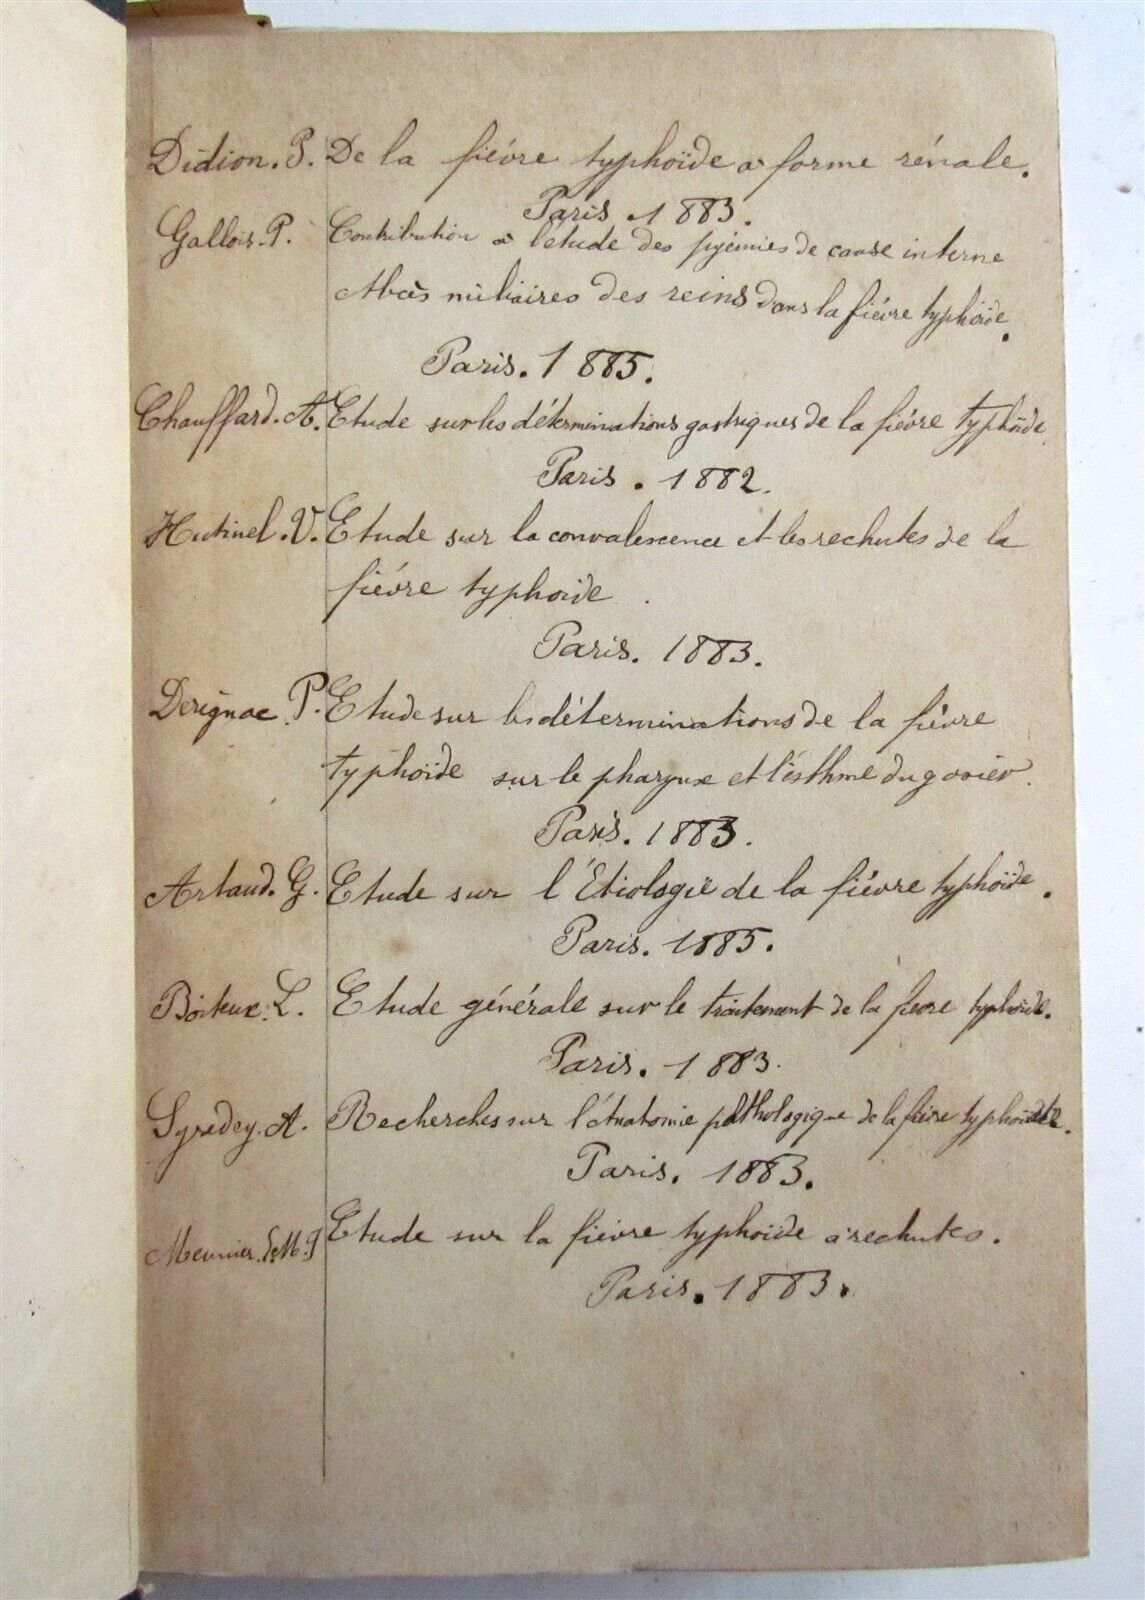 Didion. P. De la fiévre typhoïde à forme rénale.
Paris. 1883.
Gallois. P. Contribution à l'étude des pyémies de cause interne
Abcès miliaires des reins dans la fiévre typhoïde.
Paris. 1885.
Chauffard. A. Etude sur les déterminations gastriques de la fiévre typhoïde
Paris. 1882.
Hutinel. V. Etude sur la convalescence et les rechutes de la
fiévre typhoïde.
Paris. 1883.
Derignac. P. Etude sur les déterminations de la fiévre
typhoïde sur le pharynx et l'isthme du gosier.
Paris. 1883.
Artaud. G. Etude sur l'Etiologie de la fiévre typhoïde.
Paris. 1885.
Boiteux. L. Etude générale sur le traitement de la fievre typhoïde.
Paris. 1883.
Syredey. A. Recherches sur l'Anatomie pathologique de la fievre typhoïde.
Paris. 1883.
Meunier. Etude sur la fiévre typhoïde à rechutes.
Paris. 1883.